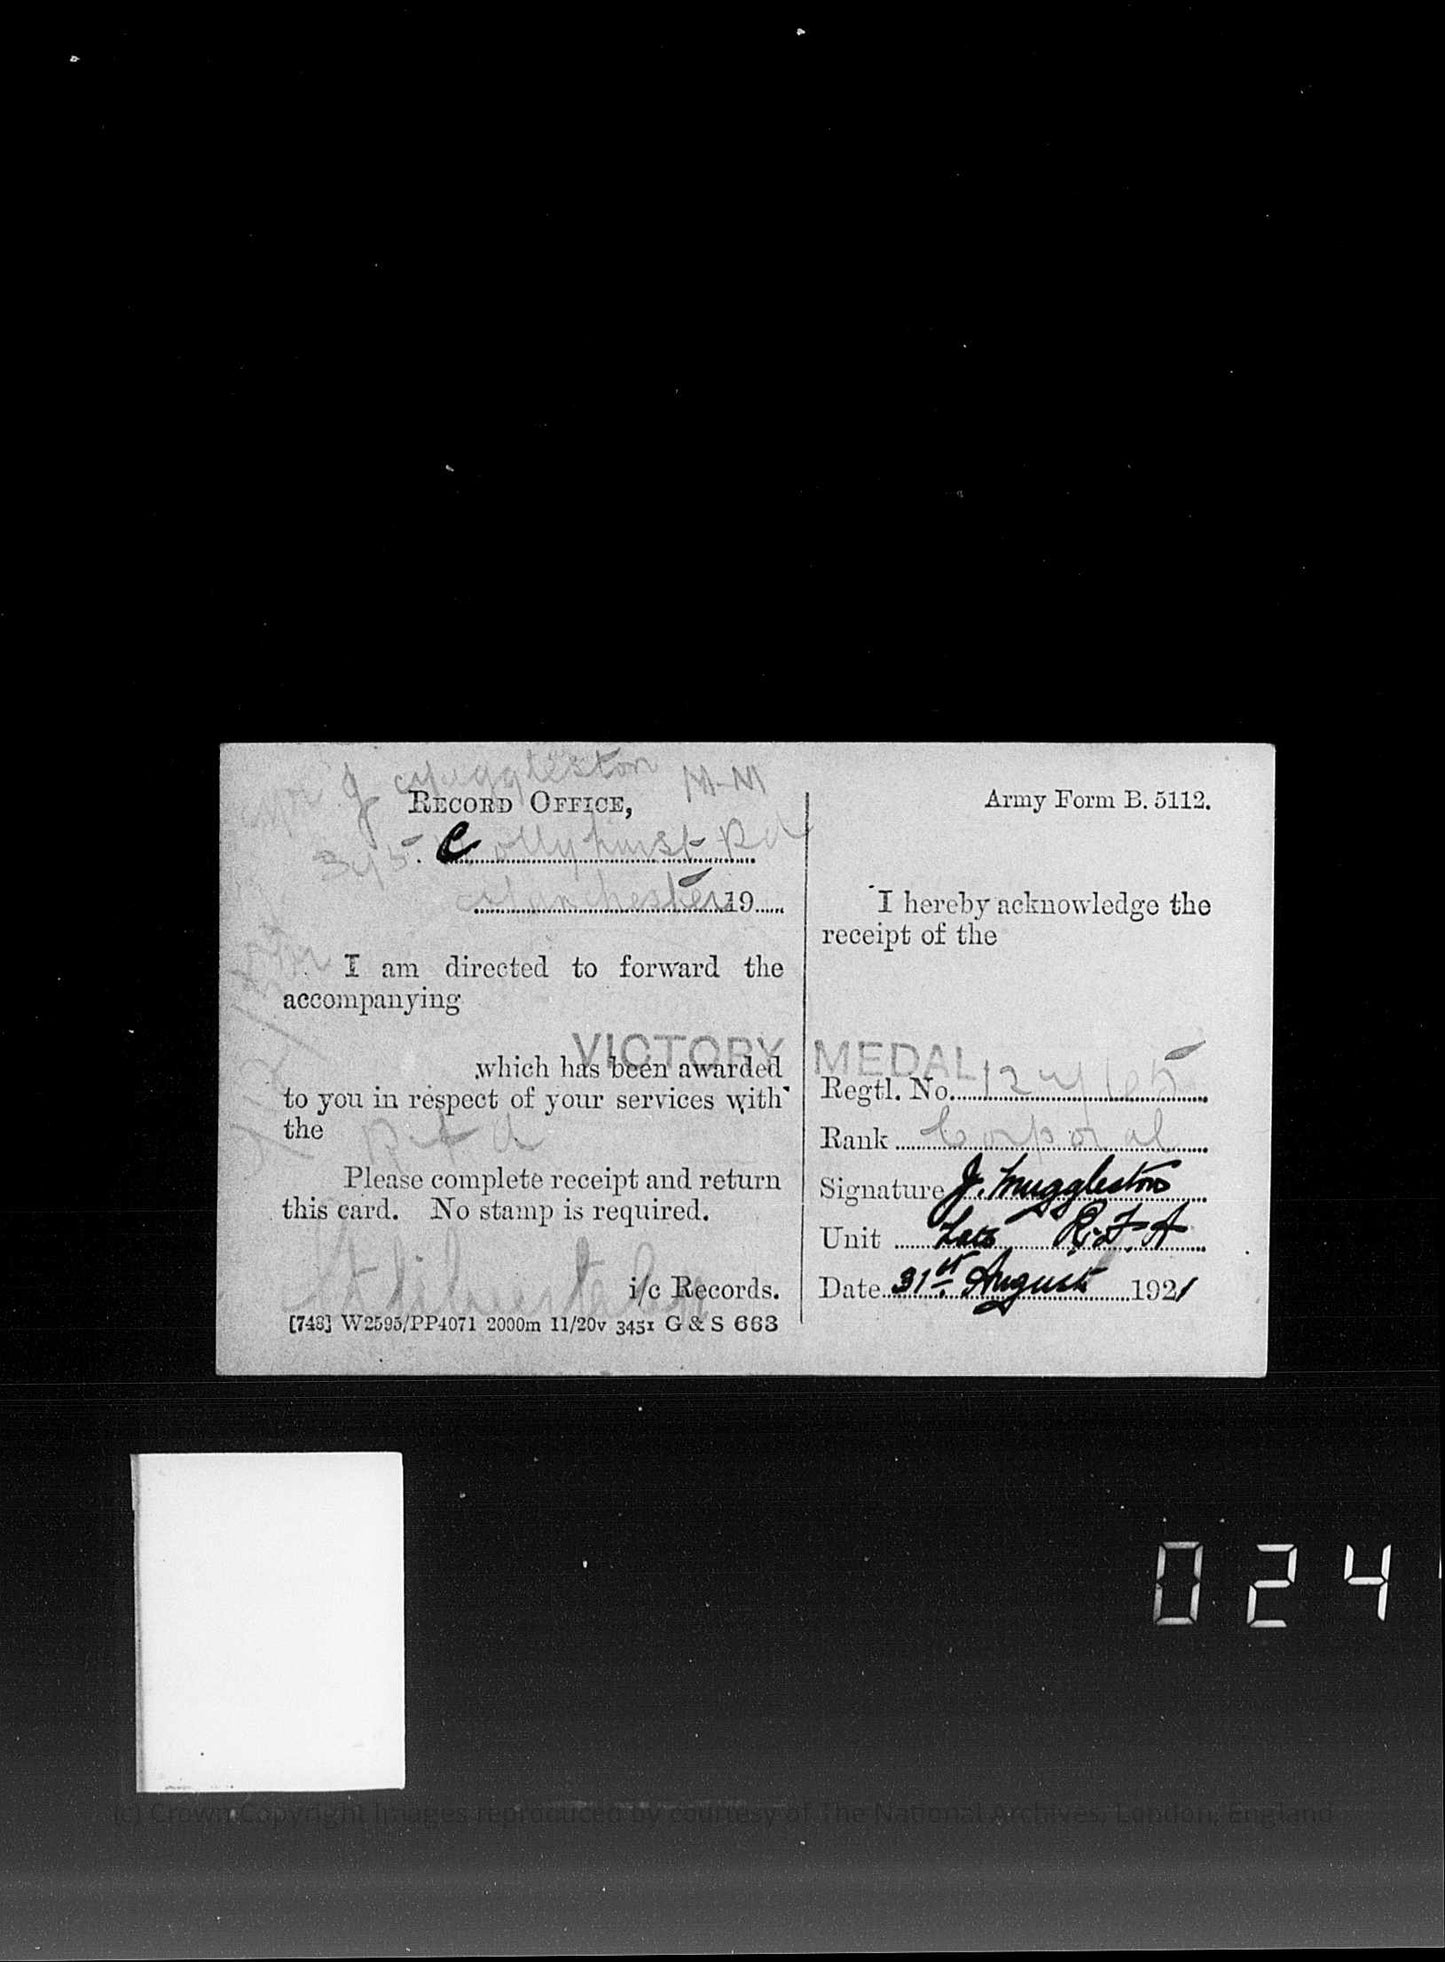 J Muggleston M-M
RECORD OFFICE,
395 Collyhurst Rd
Manchester 19
I am directed to forward the
accompanying
VICTORY MEDAL
which has been awarded
to you in respect of your services with
the R F A
Please complete receipt and return
this card. No stamp is required.
i/c Records.
[748] W2595/PP4071 2000m 11/20v 3451 G & S 663
Army Form B. 5112.
I hereby acknowledge the
receipt of the
Regtl. No.
Rank Corporal
Signature J. Muggleston
Unit Late R.F.A
Date 31st August 1921
024
(c) Crown Copyright Images reproduced by courtesy of The National Archives, London, England